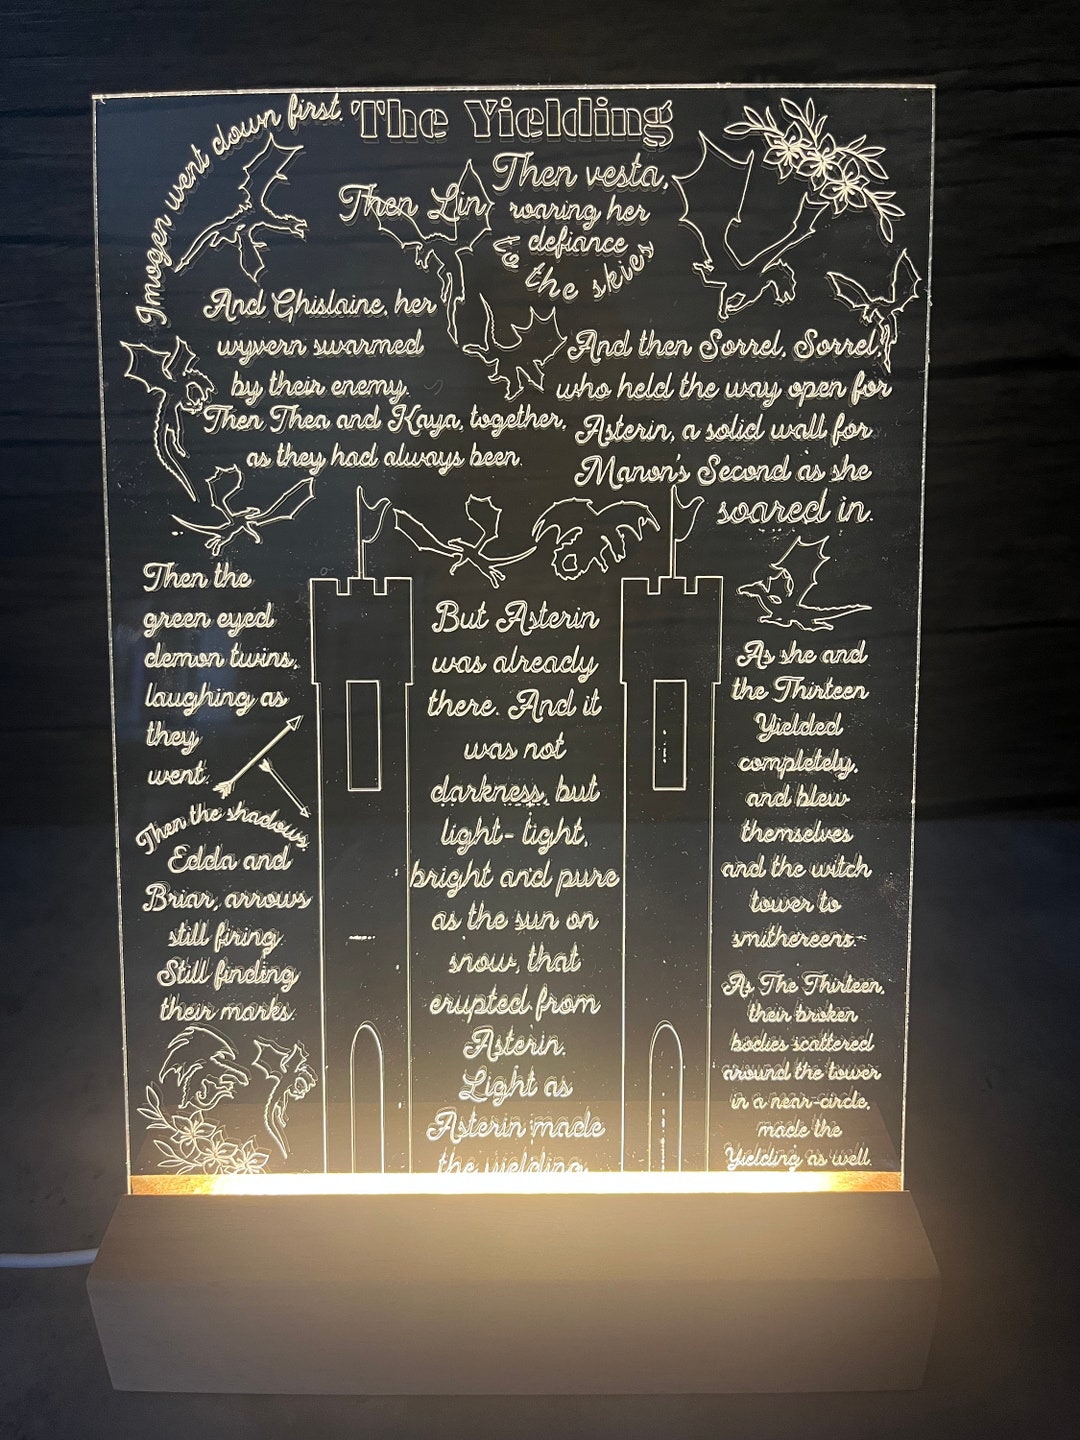 The Yielding
Imogen went down first.
Then Lin,
Then vesta,
roaring her
defiance
to
the skies
And Ghislaine, her
wyvern swarmed
by their enemy.
Then Thea and Kaya, together,
as they had always been.
And then Sorrel. Sorrel,
who held the way open for
Asterin, a solid wall for
Manon's Second as she
soared in.
Then the
green eyed
demon twins,
laughing as
they
went.
Then the shadows,
Edda and
Briar, arrows
still firing.
Still finding
their marks.
But Asterin
was already
there. And it
was not
darkness, but
light- light,
bright and pure
as the sun on
snow, that
erupted from
Asterin.
Light as
Asterin made
the yielding.
As she and
the Thirteen
Yielded
completely,
and blew
themselves
and the witch
tower to
smithereens.
As The Thirteen,
their broken
bodies scattered
around the tower
in a near-circle,
made the
Yielding as well.